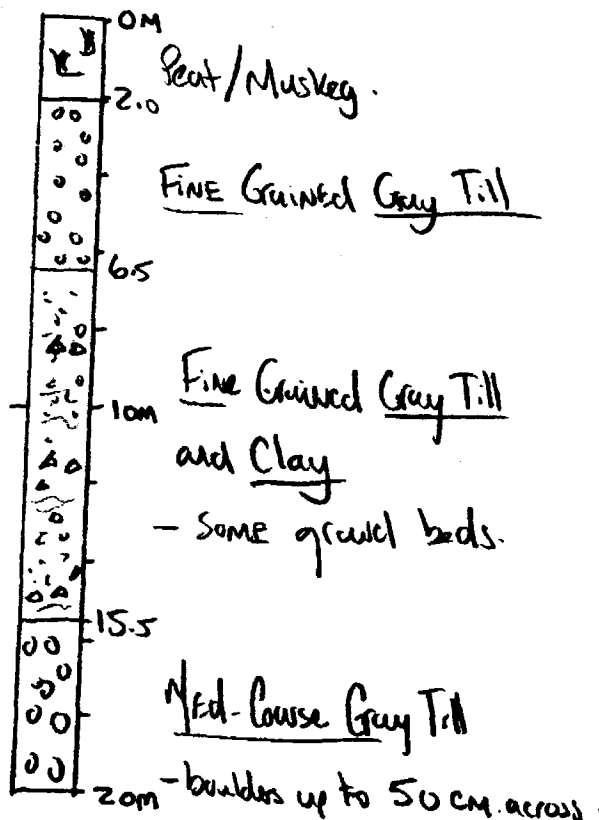 0M
Peat/Muskeg.
2.0
FINE Grained Gray Till
6.5
Fine Grained Gray Till
10M
and Clay
- SOME gravel beds.
15.5
Med-Course Gray Till
20M - boulders up to 50 CM. across.